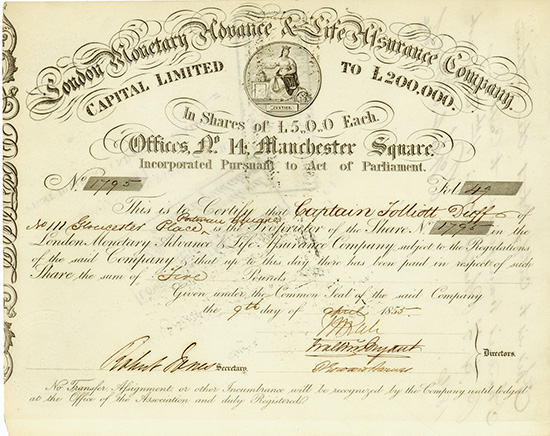 London Monetary Advance & Life Assurance Company.
CAPITAL LIMITED TO £200,000.
JUSTICE
In Shares of £5.0.0 Each.
Offices, No. 14, Manchester Square.
Incorporated Pursuant to Act of Parliament.
No. 1795 Fol. 49
This is to Certify that Captain Tolliott Duff of
No 111 Gloucester Place is the Proprietor of the Share No. 1795 in the
London Monetary Advance & Life Assurance Company subject to the Regulations
of the said Company & that up to this day there has been paid in respect of such
Share the sum of Five Pounds.
Given under the Common Seal of the said Company
the 9th day of April 1855
Walter Bryant
Robert Secretary. Directors.
No Transfer, Assignment or other Incumbrance will be recognized by the Company until lodged
at the Office of the Association and duly Registered.